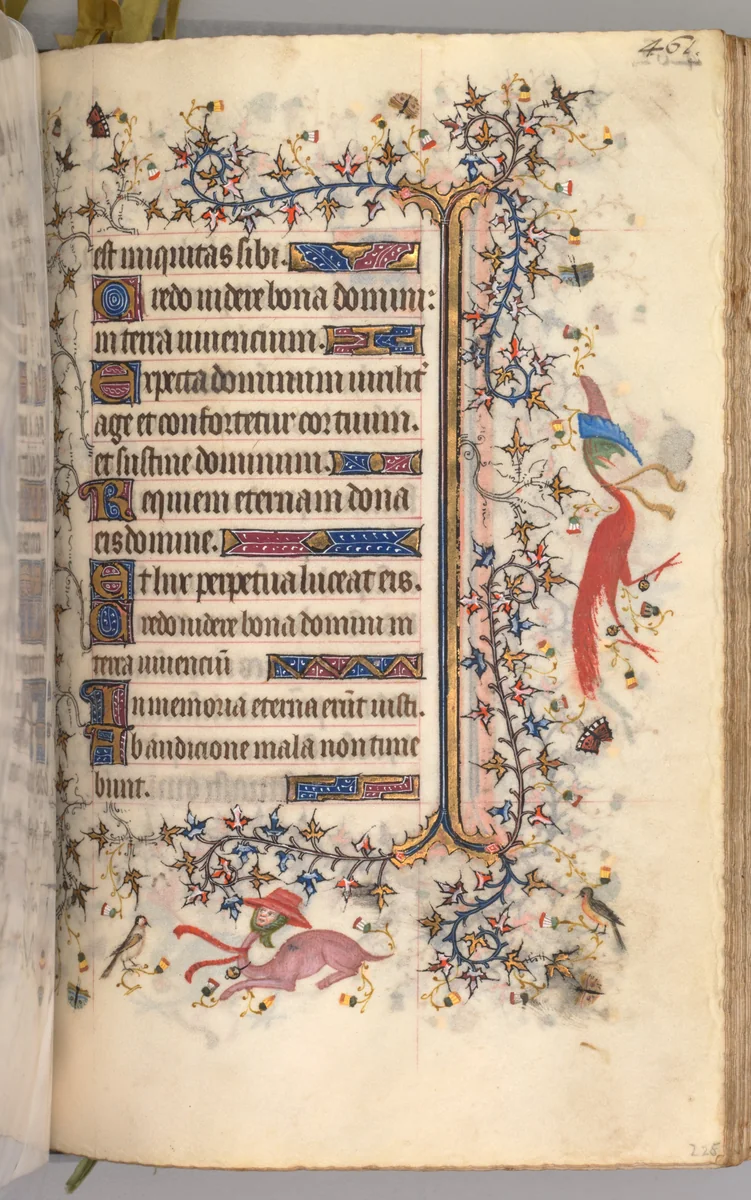 461.
est iniquitas sibi.
Credo videre bona domini:
in terra vivencium.
Expecta dominum virilit᷑
age et confortetur cor tuum.
et sustine dominum.
Requiem eternam dona
eis domine.
Et lux perpetua luceat eis.
Credo videre bona domini in
terra viuenciū
In memoria eterna erūt iusti.
Ab audicione mala non time
bunt.
225